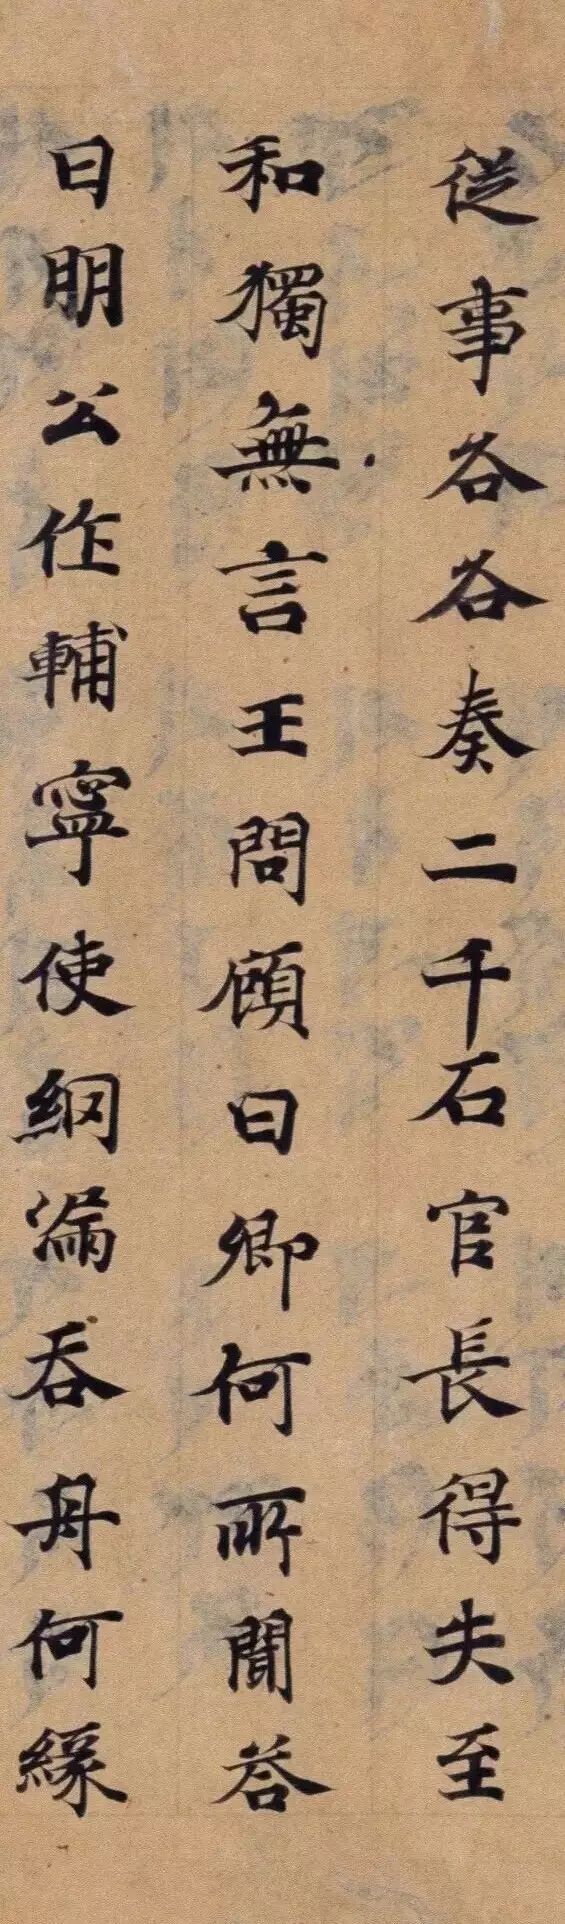 從事各各奏二千石官長得失至
和獨無言王問顧曰卿何所聞答
曰明公作輔寧使網漏吞舟何緣